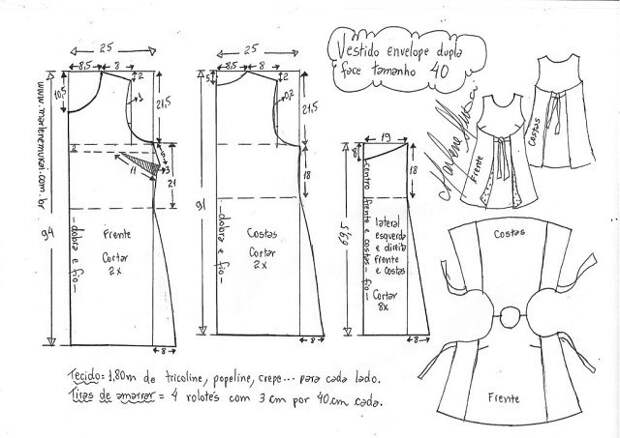 Vestido envelope dupla
face tamanho 40
www.marlenemukai.com.br
25
8,5
8
2
10,5
3
21,5
2
5
3
11
21
94
Frente
Cortar
2x
dobra e fio
8
25
8,5
8
5
2
0,2
21,5
18
91
Costas
Cortar
2x
dobra e fio
8
19
18
69,5
centro frente e costas - fio
lateral
esquerda
e direita
frente
e costas
Cortar
8x
8
Marlene Mukai
Frente
Costas
Costas
Frente
Tecido= 1,80m de tricoline, popeline, crepe... para cada lado.
Tiras de amarrar = 4 rolotés com 3 cm por 40 cm cada.